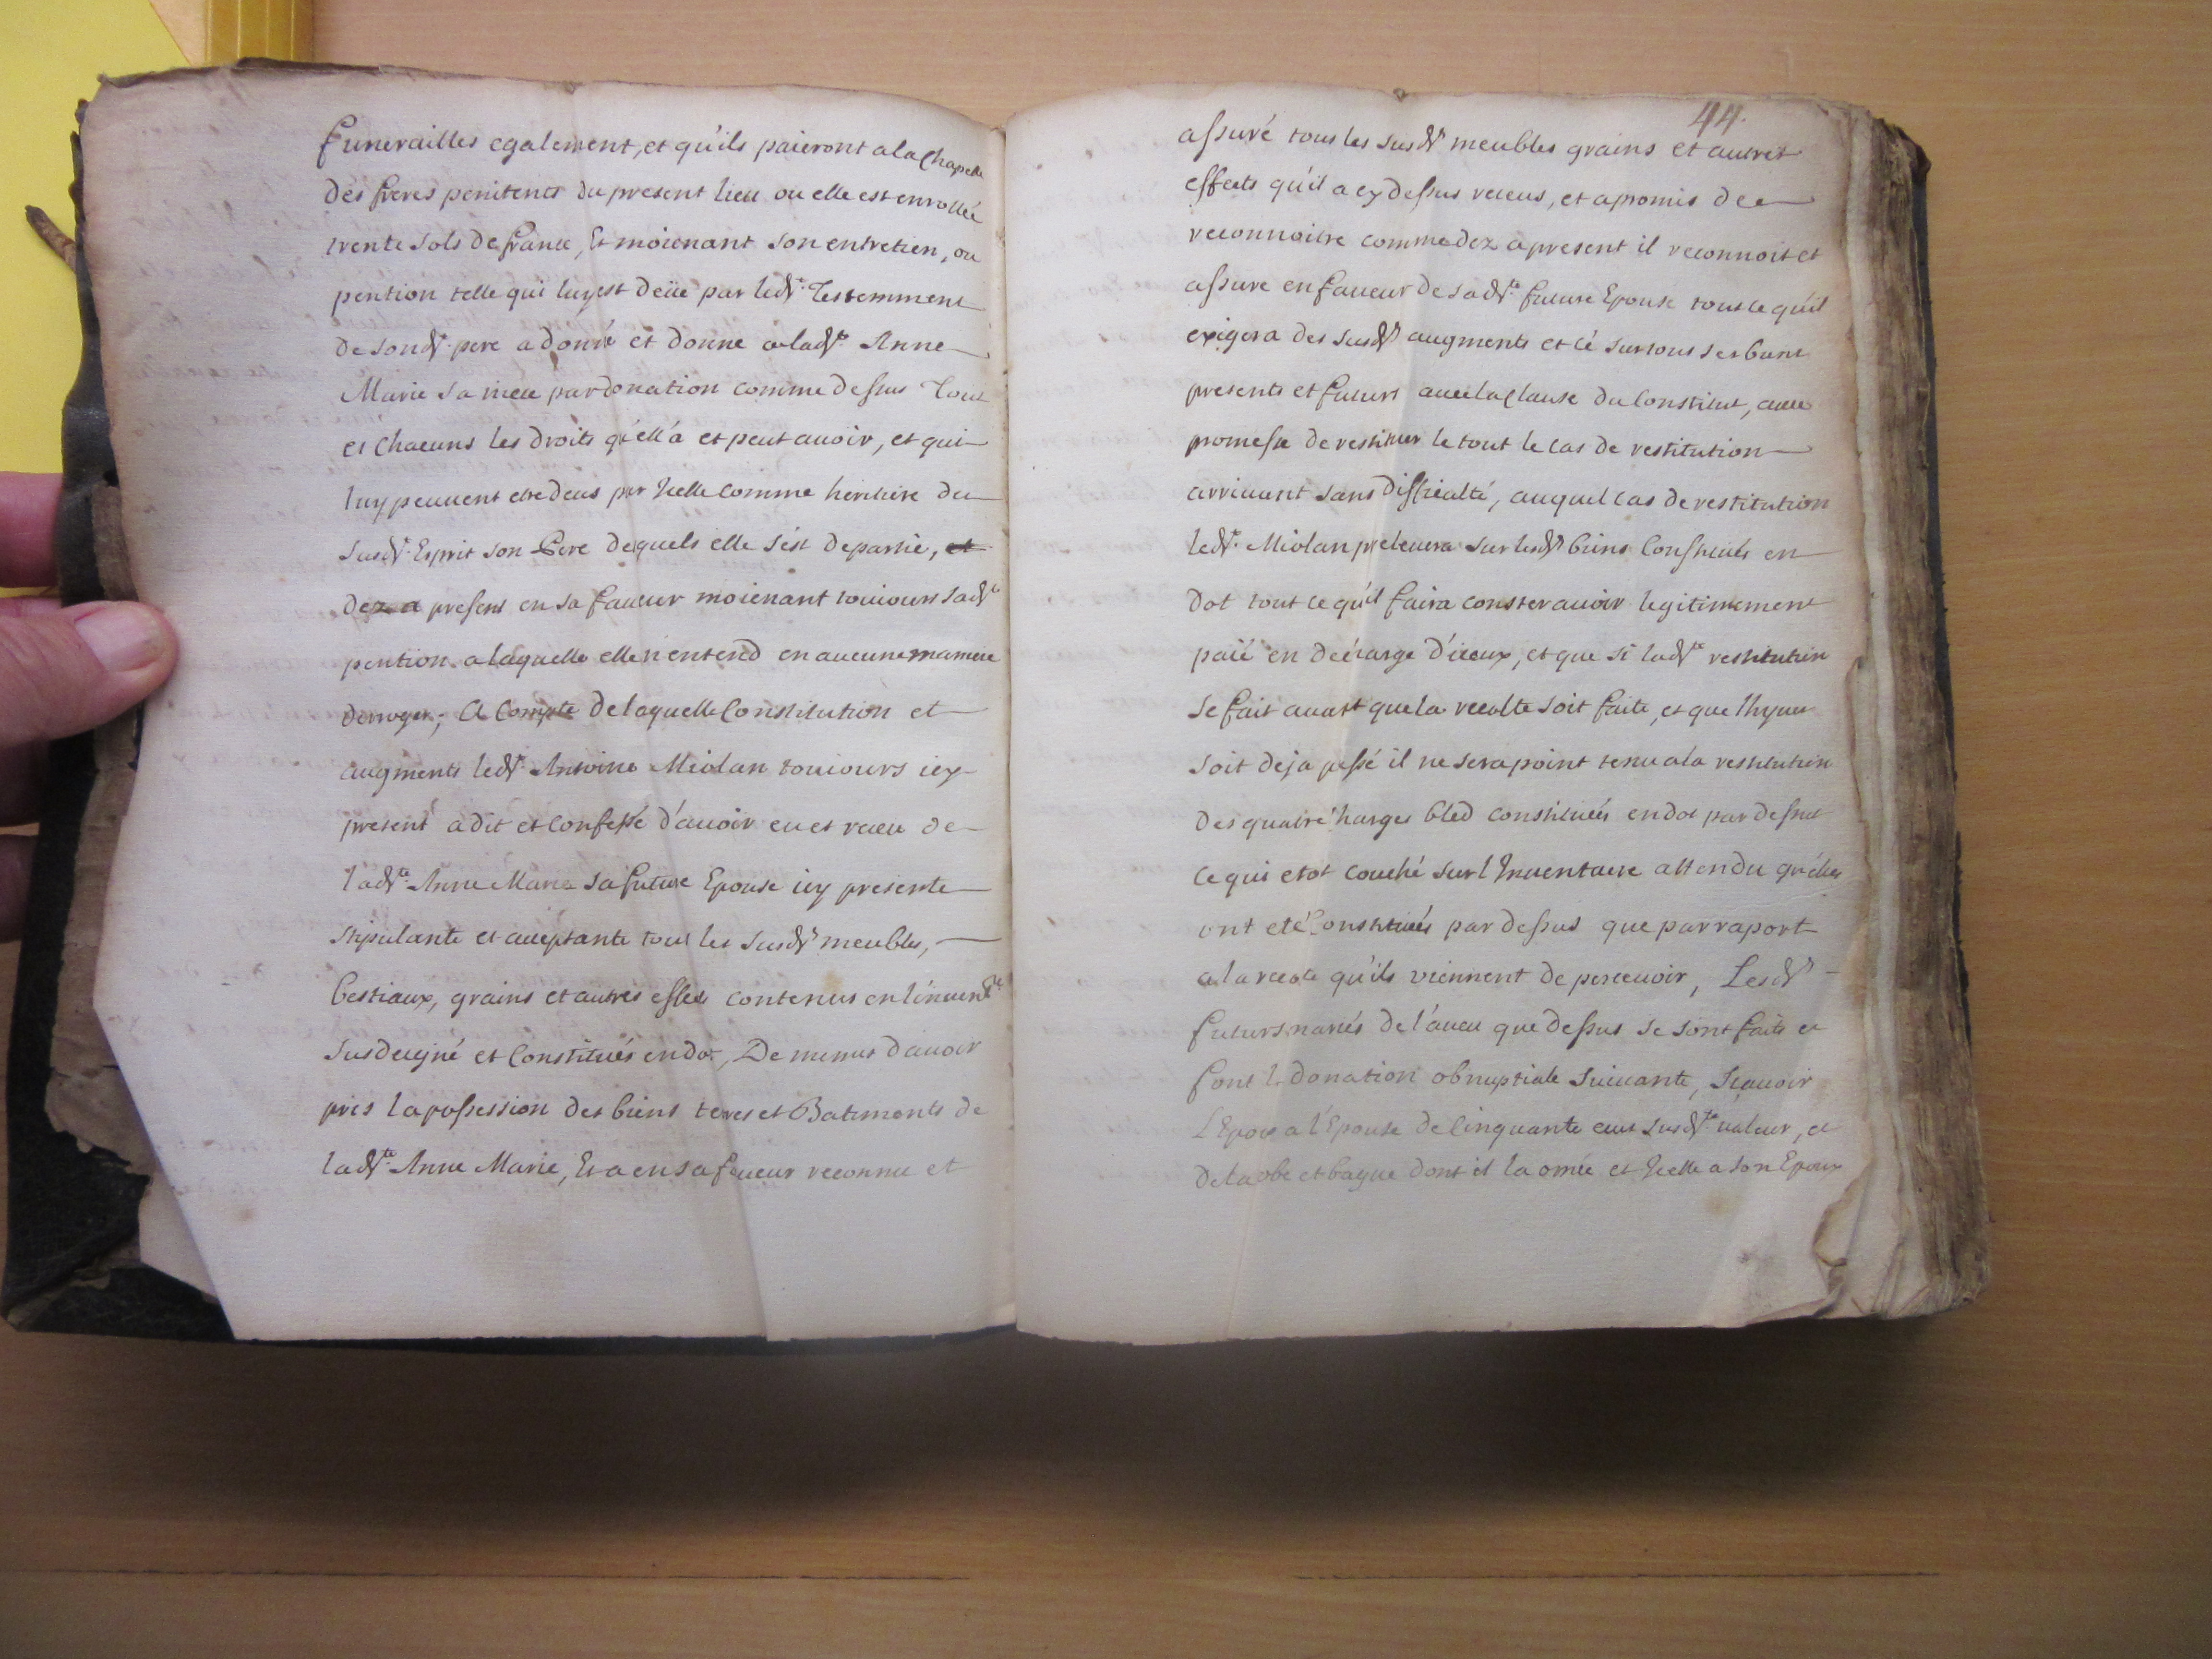 funerailles egalement, et qu'ils paieront a la Chapelle
des freres penitents du present lieu ou elle est enrollée
trente sols de france, Et moienant son entretien, ou
pention telle qui luy est deüe par led.t Testemment
de sond.t pere a donné et donne a lad.te Anne
Marie sa niece par donation comme dessus Tout
et Chacuns les droits qu'ell'a et peut auoir, et qui
luy peuuent etre deus par Icelle comme heritiere du
susd.t Esprit son Pere dequels elle s'est departie, et
dez a present en sa faueur moienant touiours sad.te
pention a laquelle elle n'entend en aucune maniere
derroger; A Compte de laquelle Constitution et
augments led.t Antoine Miolan touiours icy
present a dit et Confessé d'auoir eu et receu de
lad.te Anne Marie sa future Epouse icy presente
stipulante et acceptante tout les susd.ts meubles,
bestiaux, grains et autres effets contenus en l'inuent.re
susdesigné et Constitués en dot, De memes d'auoir
pris la possession des biens terres et Batiments de
lad.te Anne Marie, Et a en sa faueur reconnu et
44.
assuré tous les susd.ts meubles grains et autres
effects qu'il a cy dessus receus, et a promis de
reconnoitre comme dez a present il reconnoit et
assure en faueur de sad.te future Epouse tout ce qu'il
exigera des susd.ts augments et cé sur tous ses biens
presents et futurs auec la Clause du Constitut, auec
promesse de restituer le tout le cas de restitution
arriuant sans difficulté, auquel cas de restitution
led.t Miolan preleuera sur lesd.ts biens Constitués en
dot tout ce qu'il faira conster auoir legitimement
paié en decharge d'iceux, et que si lad.te restitution
se fait auant que la recolte soit faite, et que l'hyuer
soit deja passé il ne sera point tenu a la restitution
des quatre charges bled constituées en dot par dessus
ce qui etot couché sur l'Inuentaire attendu qu'elles
ont eté Constituées par dessus que par raport
a la recolte qu'ils viennent de perceuoir, Lesd.ts
futurs mariés de l'aueu que dessus se sont faits et
font la donation obnuptiale suiuante, Sçauoir
L'Epoux a l'Epouse de Cinquante ecus susd.te valeur, et
de la robe et bague dont il l'a ornée et Icelle a son Epoux